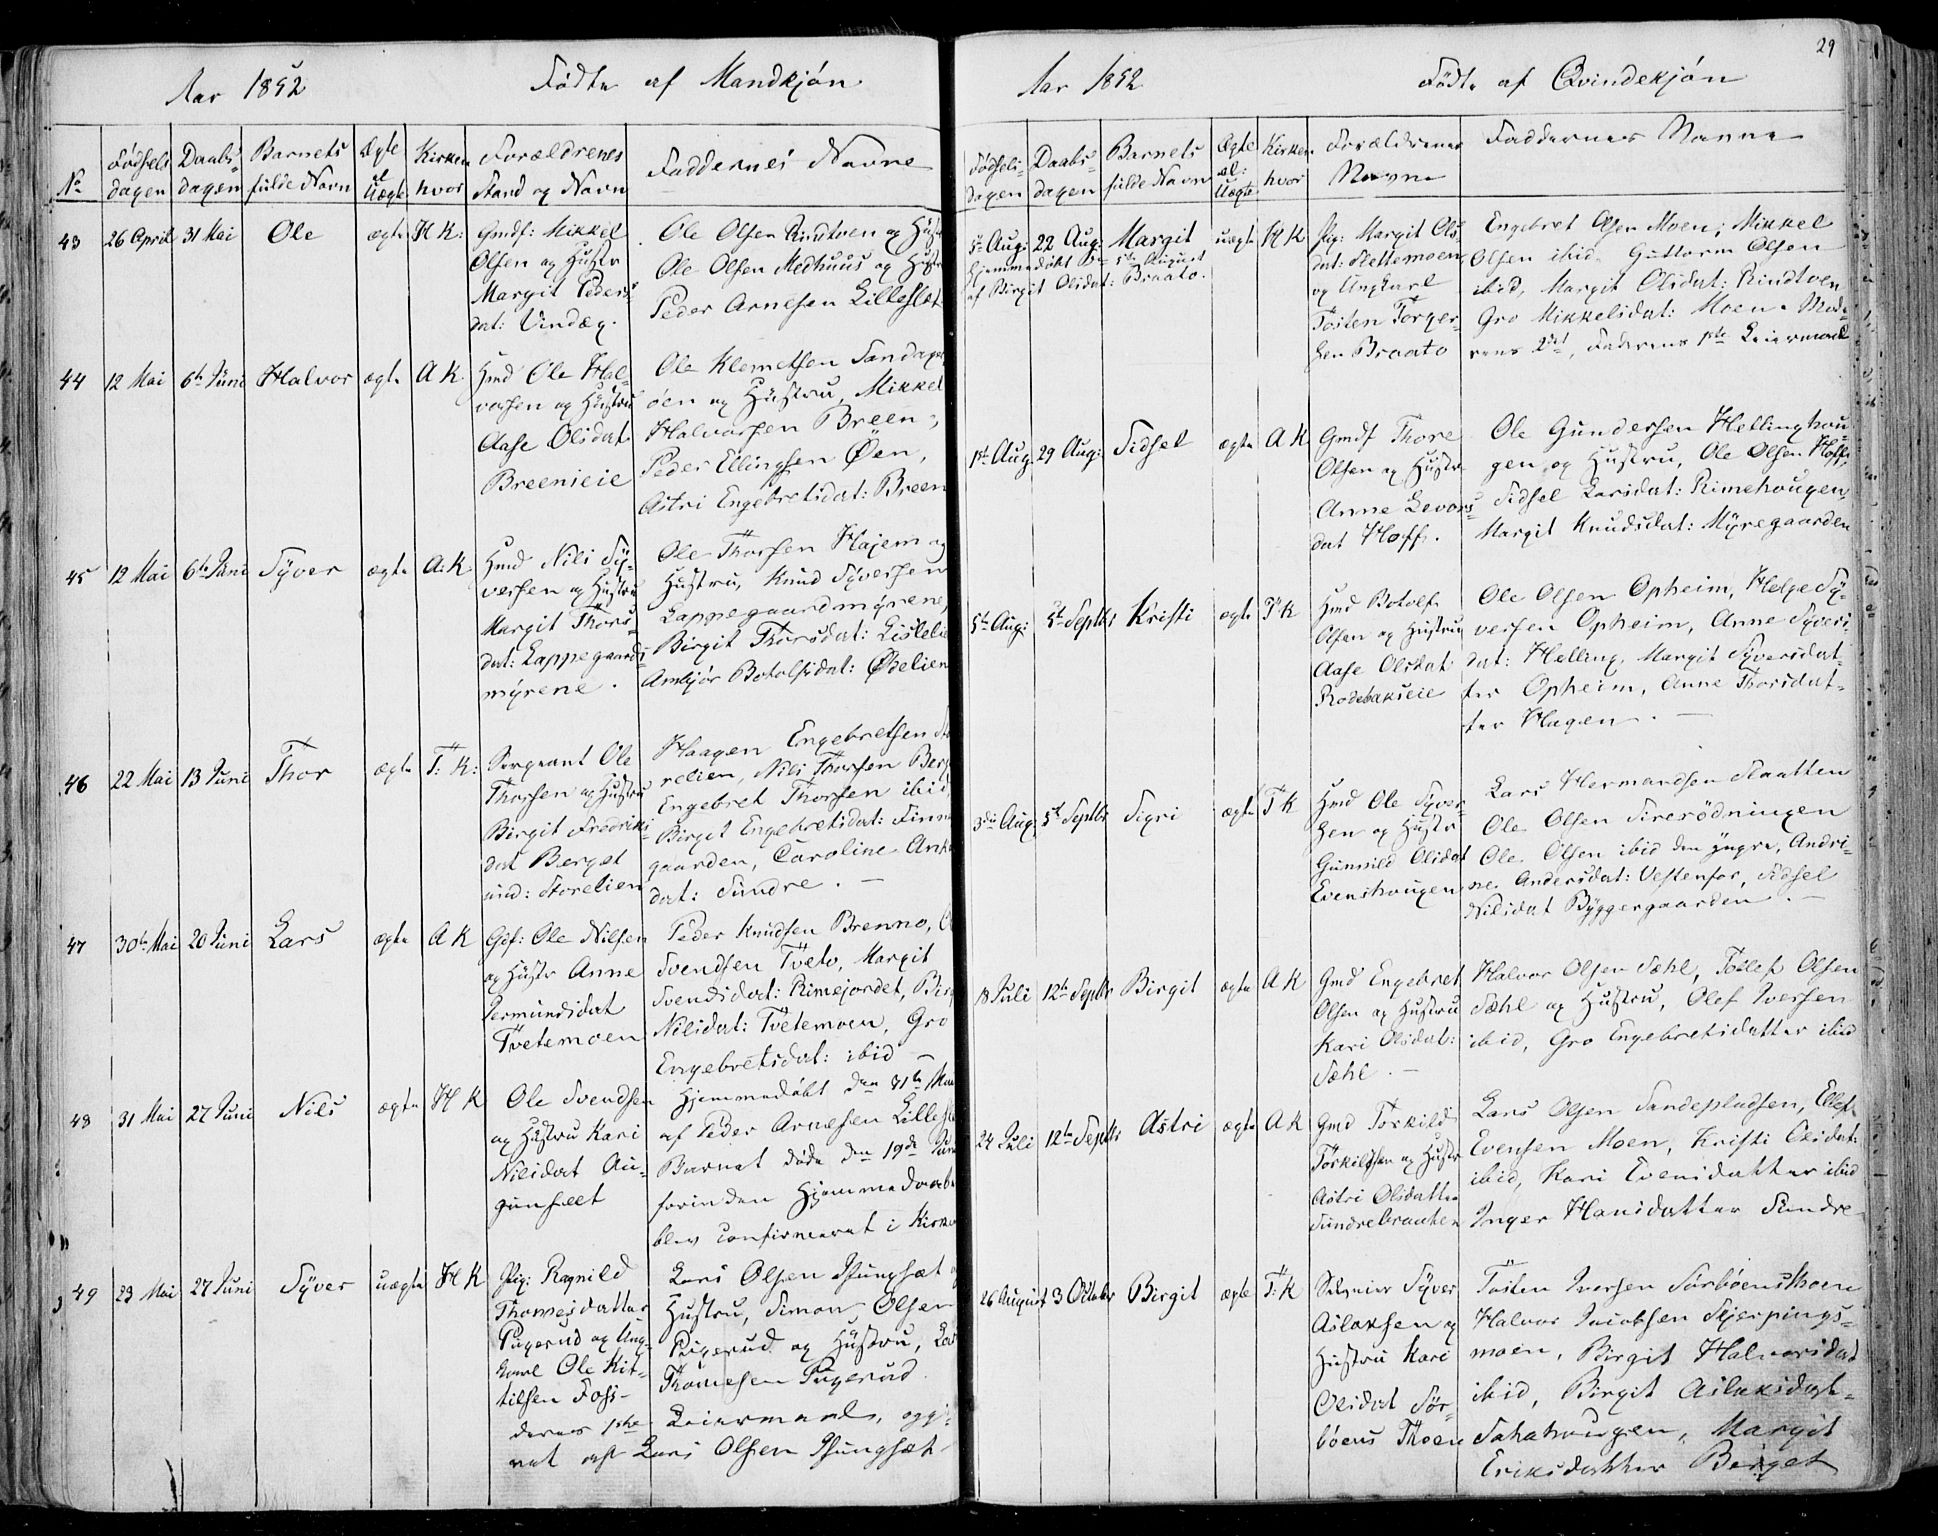 29
Aar 1852 Fødte af Mandkjøn
No Fødsels dagen Daabs dagen Barnets fulde Navn Ægte el Uægte Kirken hvor Forældrenes Stand og Navn Faddernes Navne
43 26 April 31 Mai Ole ægte H K: Gmdf: Mikkel
Olsen og Hustr
Margit Peders-
dat: Vindeg.
Ole Olsen Rindtven og Hustr
Ole Olsen Medhuus og Hustr
Peder Arnesen Lilleslet
44 12 Mai 6te Juni Halvor ægte A K. Hmd Ole Hal-
vorsen og Hustru
Aase Olsdat
Breeneie
Ole Klemetsen Sandager
øen og Hustru, Mikkel
Halvorsen Breen,
Peder Ellingsen Øen,
Astri Engebretsdat: Breen
45 12 Mai 6te Juni Syver ægte A: K. Hmd Nils Sy-
versen og Hustru
Margit Thors-
dat: Lappegaards-
myrene.
Ole Thorsen Hajem og
Hustru, Knud Syversen
Lappegaardmyrene,
Birgit Thorsdat: Lislelie
Ambjør Botolfsdat: Ødelien
46 22 Mai 13 Juni Thor ægte T: K: Sergeant Ole
Thorsen og Hustru
Birgit Fredriks-
dat Berget
und: Storelien
Haagen Engebretsen Sto
relien, Nils Thorsen Berg
Engebret Thorsen ibid
Birgit Engebretsdat: Finne
gaarden, Caroline
dat: Sundre. —
47 30te Mai 20 Juni Lars ægte A K Gdf: Ole Nilsen
og Hustr Anne
Germundsdat
Tvetemoen
Peder Knudsen Brenno,
Svendsen Tveto, Margit
Svendsdat: Rimejordet, Birg
Nilsdat: Tvetemoen, Gro
Engebretsdat: ibid —
48 31 Mai 27 Juni Nils ægte H K Ole Svendsen
og Hustru Kari
Nilsdat Au-
gunset
Hjemmedøbt den 31te Mai
af Peder Arnesen Lillesle
Barnet døde den 19de Juni
forinden Hjemmedaaben
blev confirmeret i Kirken
49 23 Mai 27 Juni Syver uægte H K Pig: Ragnild
Thomesdatter
Pugerud og Ung-
karl Ole Kit-
tilsen Foss-
Lars Olsen og
Hustru, Simon Olsen
Pugerud og Hustru, Lars
Thomesen Pugerud.
deres 1ste Leiermaal, opgi-
vet af Lars Olsen
Aar 1852 Fødte af Qvindekjøn
Fødsels- dagen Daabs- dagen Barnets fulde Navn Ægte el: Uægte Kirken hvor Forældrenes Navne Faddernes Navne
5te Aug: 22 Aug: Margit uægte H K Pig: Margit Ols-
dat: Slettemoen
og Ungkarl
Tosten Torger-
sen Braato
Hjemmedøbt den 5te August
af Birgit Olsdat: Braato.
Engebret Olsen Moen, Mikkel
Olsen ibid, Guttorm Olsen
ibid, Margit Olsdat: Rindtven
Gro Mikkelsdat: Moen. Mode-
rens 2det, Faderens 1ste Leiermaal
1ste Aug. 29 Aug: Sidsel ægte A K Gmdf Thore
Olsen og Hustr
Anne Levors-
dat Hoff.
Ole Gundersen Hellinghou-
gen og Hustru, Ole Olsen Hoff,
Sidsel Larsdat: Rimehougen,
Margit Knudsdat: Myregaarden
5te Aug: 5te Septbr Kristi ægte T K Hmd Botolf
Olsen og Hustru
Aase Olsdat
Rodebakeie
Ole Olsen Opheim, Helge Sy-
versen Opheim, Anne Syvers-
dat: Helling, Margit Syversdat-
ter Opheim, Anne Thorsdat-
ter Hagen. —
3die Aug. 5te Septbr Sigri ægte T K Hmd Ole Syver-
sen og Hustr
Gunnild Olsdat
Evenshougen
Lars Hermandsen Slaatten
Ole Olsen Sirerødningen
Ole Olsen ibid den yngre, Andri-
ne Andersdat: Vestenfor, Sidsel
Nilsdat Byggergaarden. —
18 Juli 12te Septbr Birgit ægte A K Gmd Engebret
Olsen og Hustru
Kari Olsdat:
Sæhl. —
Halvor Olsen Sæhl, Tollef Olsen
Sæhl og Hustru, Olef Iversen
ibid, Gro Engebretsdatter ibid
24 Juli 12te Septbr Astri ægte A K Gmd Torkild
Torkildsen og Hustr
Astri Olsdatter
Sundrebraaten
Lars Olsen Sandepladsen, Ellef
Evensen Moen, Kristi Olsdat:
ibid, Kari Evensdatter ibid
Inger Hansdatter Sundre
26 August 3 Octobr Birgit ægte T: K Selveier Syver
Aslaksen og
Hustru Kari
Olsdat Sør-
bøens Moen
Tosten Iversen Sørbøens Moen
Halvor Jacobsen Skjerpings-
moen, Birgit Halvorsdat
ibid, Birgit Aslaksdat-
Sahahougen, Margit
Eriksdatter Berget